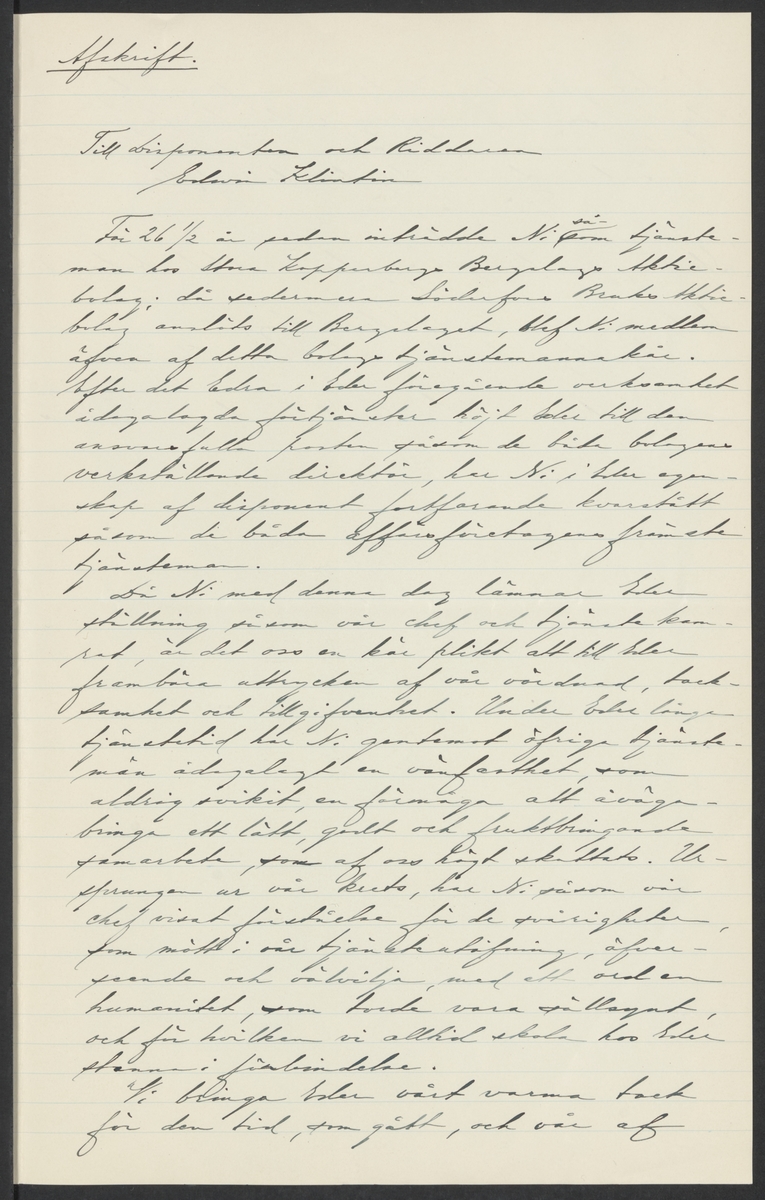 Afskrift.
Till Disponenten och Riddaren
Edwin Klintin
För 26 1/2 år sedan inträdde Ni såsom tjänste-
man hos Stora Kopparbergs Bergslags Aktie-
bolag; då sedermera Söderfors Bruks Aktie-
bolag anslöts till Bergslaget, blef Ni medlem
äfven af detta bolags tjänstemannakår.
Efter det Edra i Eder föregående verksamhet
ådagalagda förtjänster höjt Eder till den
ansvarsfulla posten såsom de båda bolagens
verkställande direktör, har Ni i Eder egen-
skap af disponent fortfarande kvarstått
såsom de båda affärsföretagens främste
tjänsteman.
Då Ni med denna dag lämnar Eder
ställning såsom vår chef och tjänstekam-
rat, är det oss en kär plikt att till Eder
frambära uttrycken af vår vördnad, tack-
samhet och tillgifvenhet. Under Eder långa
tjänstetid har Ni gentemot öfriga tjänste-
män ådagalagt en vänfasthet, som
aldrig svikit, en förmåga att åväga-
bringa ett lätt, godt och fruktbringande
samarbete, som af oss högt skattats. Ur-
sprungen ur vår krets, har Ni såsom vår
chef visat förståelse för de svårigheter,
som mött i vår tjänsteutöfning, öfver-
seende och välvilja, med ett ord en
humanitet, som torde vara sällsynt,
och för hvilken vi alltid skola hos Eder
stanna i förbindelse.
"Vi bringa Eder vårt varma tack
för den tid, som gått, och vår af